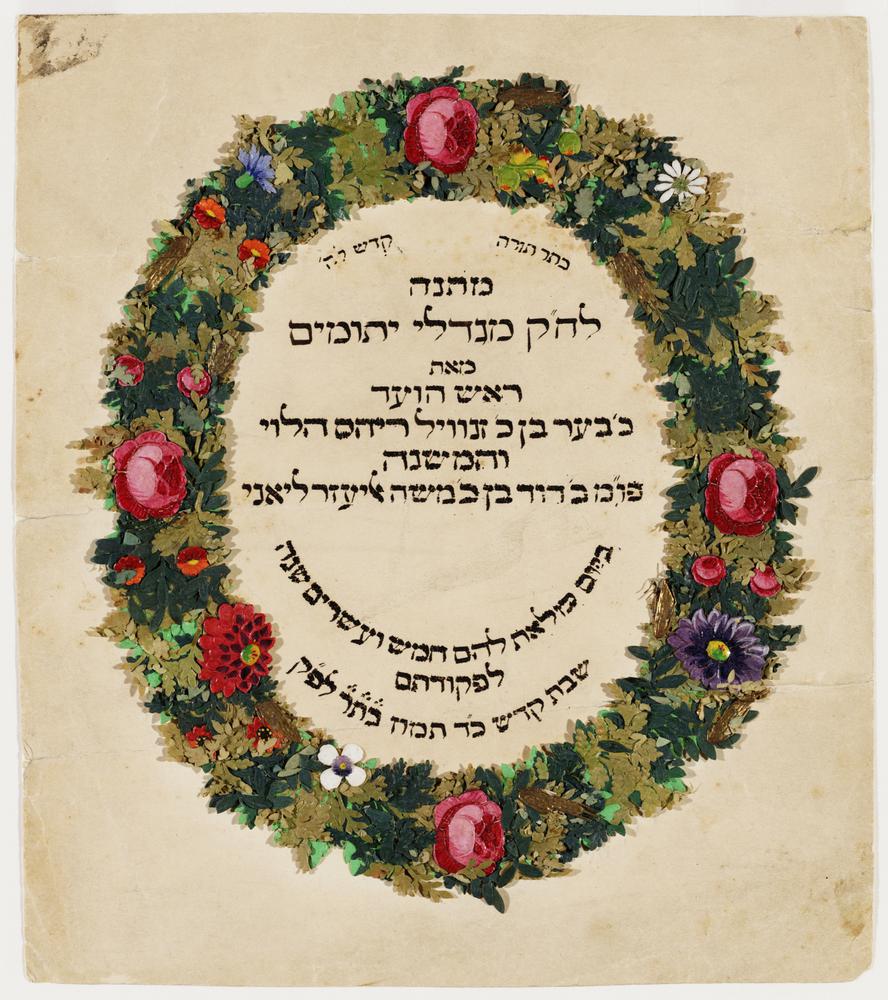 כתר תורה קדש לה'
מתנה
לח"ק מגדלי יתומים
מאת
ראש הועד
כ' בער בן כ' זנוויל רייהס הלוי
והמשנה
פו"מ כ' דוד בן כ' משה אליעזר ליאני
ביום מלאת להם חמש ועשרים שנה
לפקודתם
שבת קדש כד תמוז כ'ת'ר' לפ"ק